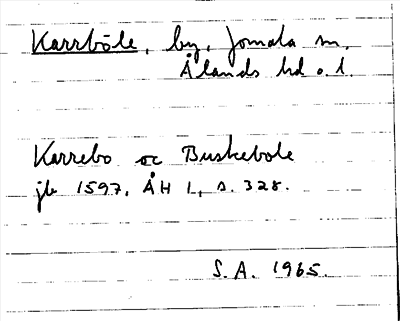 Karrböle, by, Jomala sn,
Ålands hd o. l.
Karrebo oc Buskebole
jb 1597, ÅH I, s. 328.
S.A. 1965.